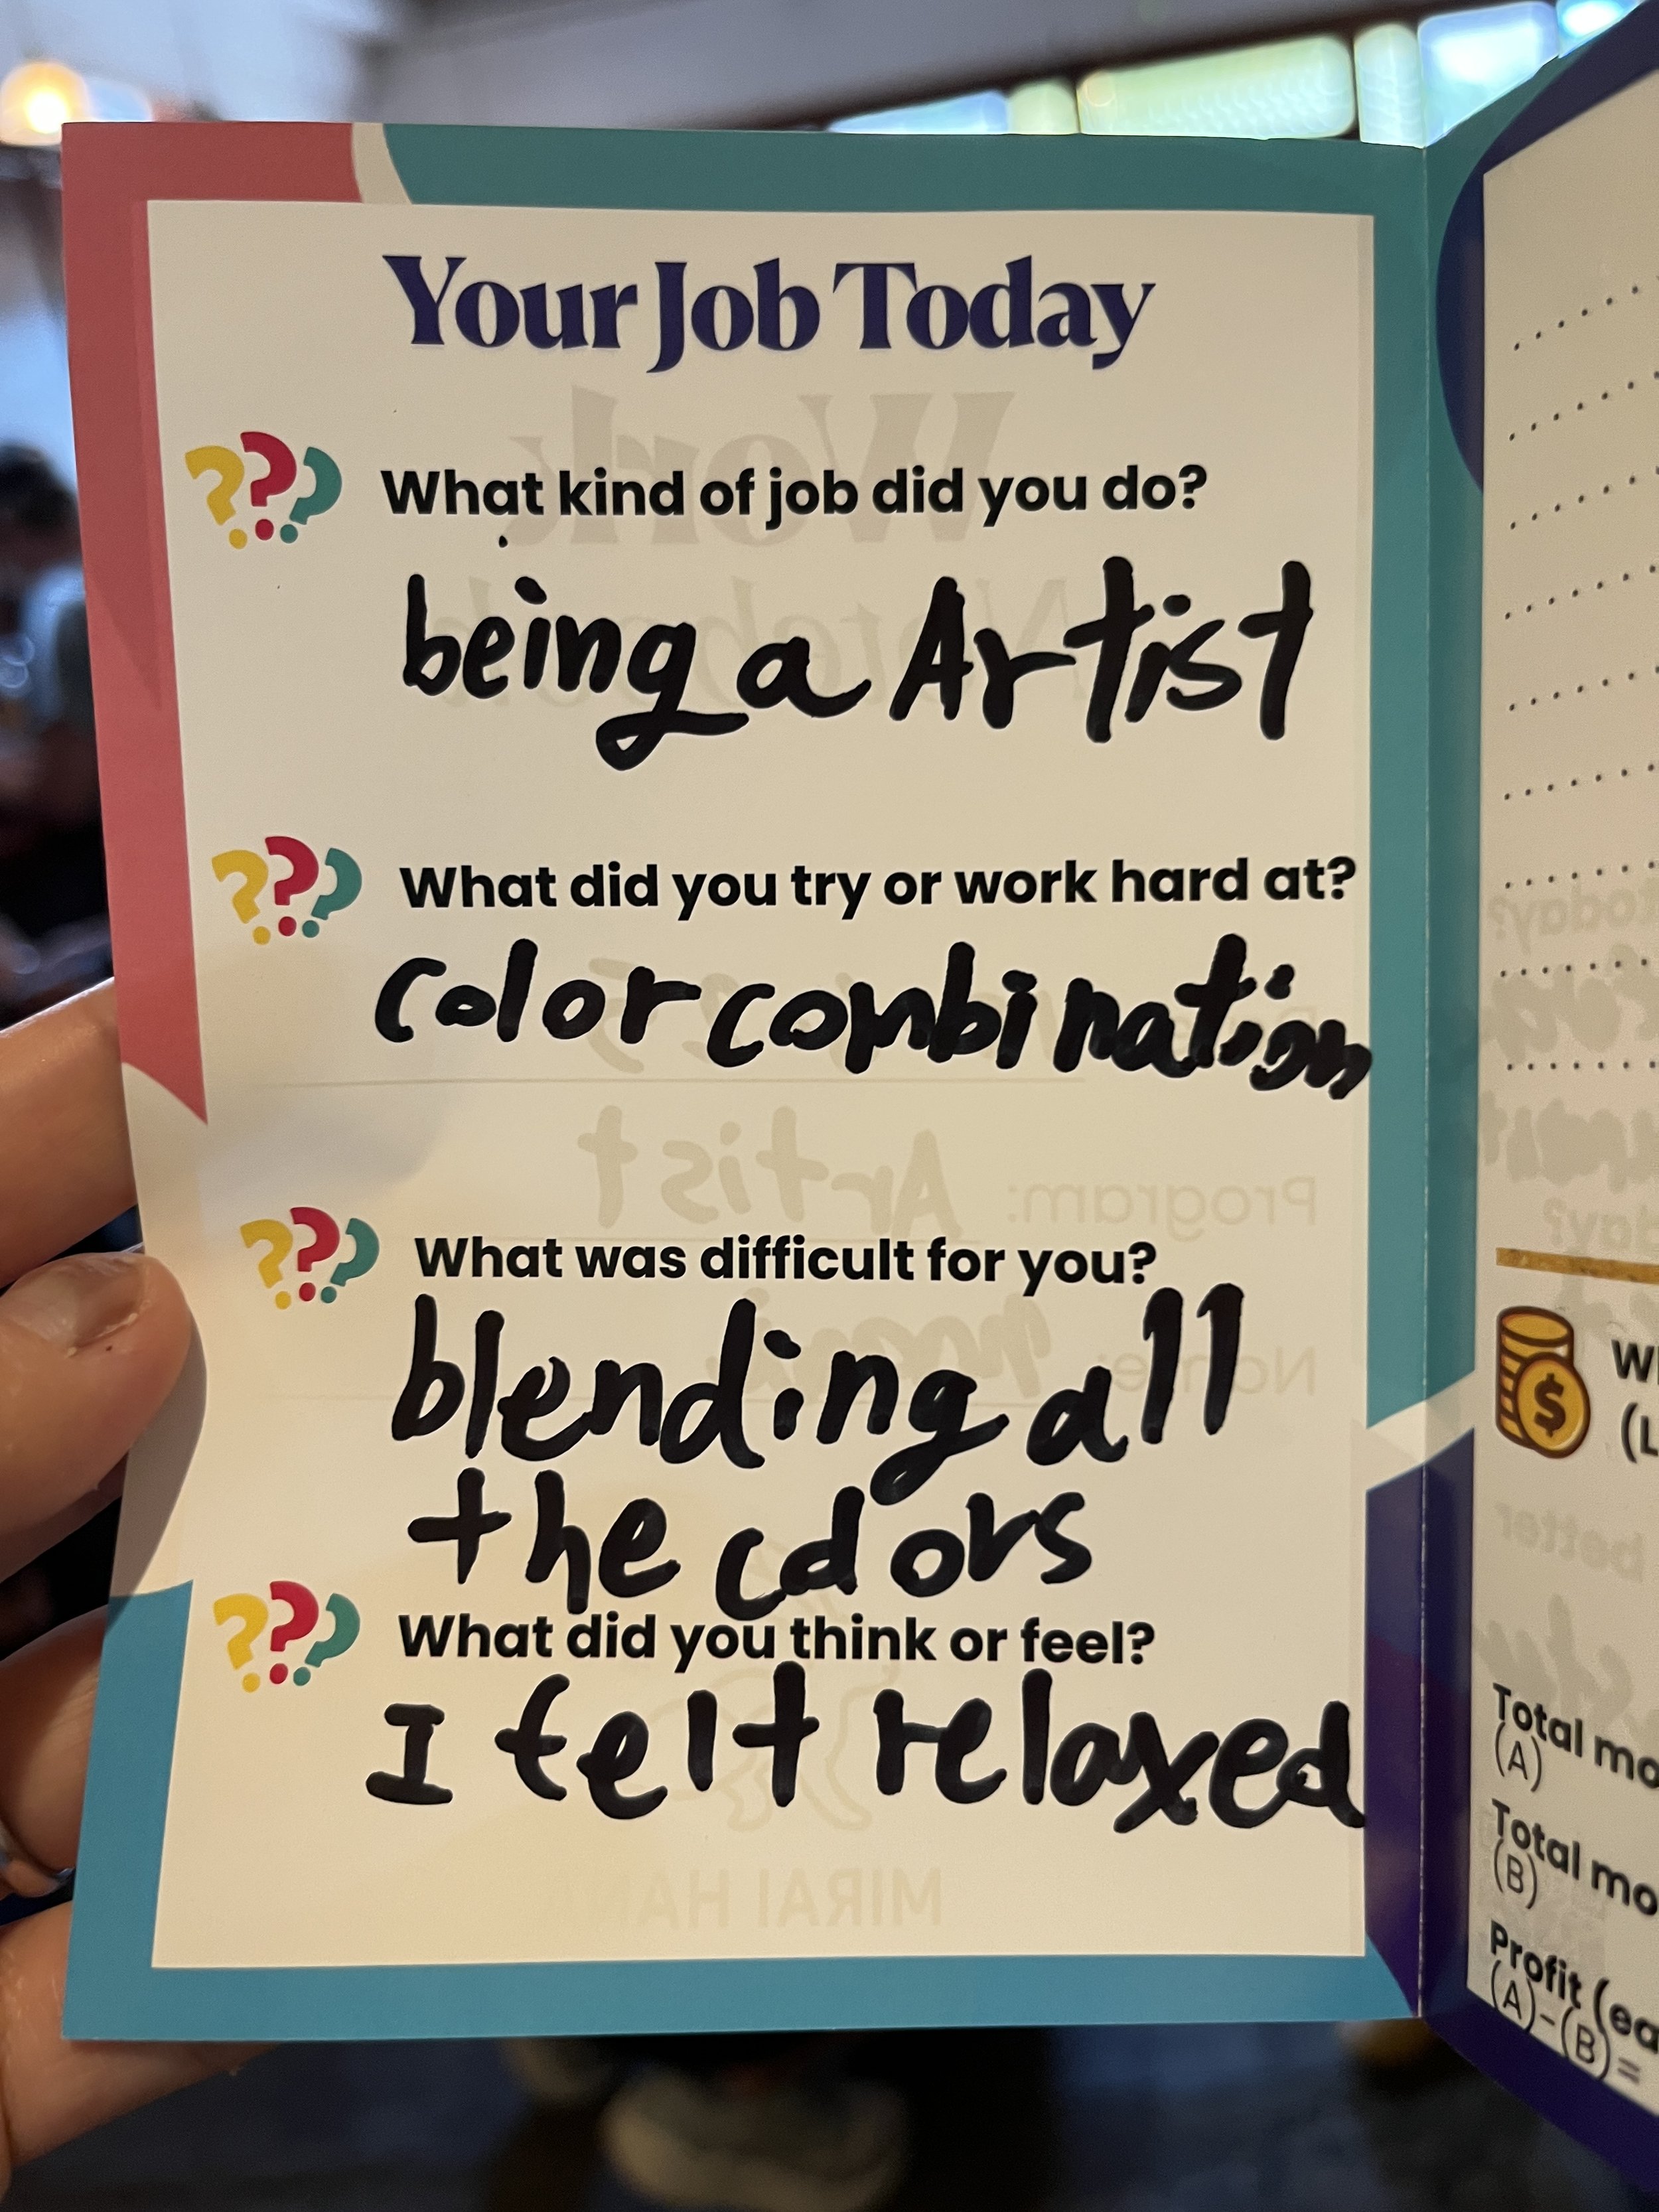 Your Job Today
??? What kind of job did you do?
being a Artist
??? What did you try or work hard at?
color combination
??? What was difficult for you?
blending all
the colors
??? What did you think or feel?
I felt relaxed
$
Total mo
(A)
Total mo
(B)
Profit (ea
(A)-(B)=